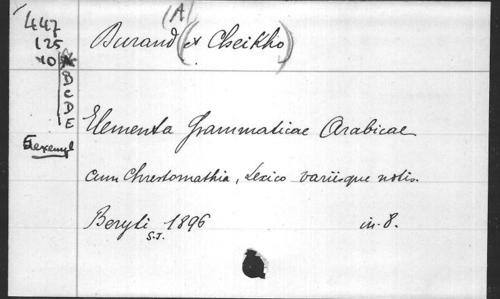 (A)
447
125
10
B
C
D
E
Durand (et Cheikho)
Elementa Grammaticae Arabicae
cum Chrestomathia, Lexico variisque notis.
Beryti 1896 in-8.
S.J.